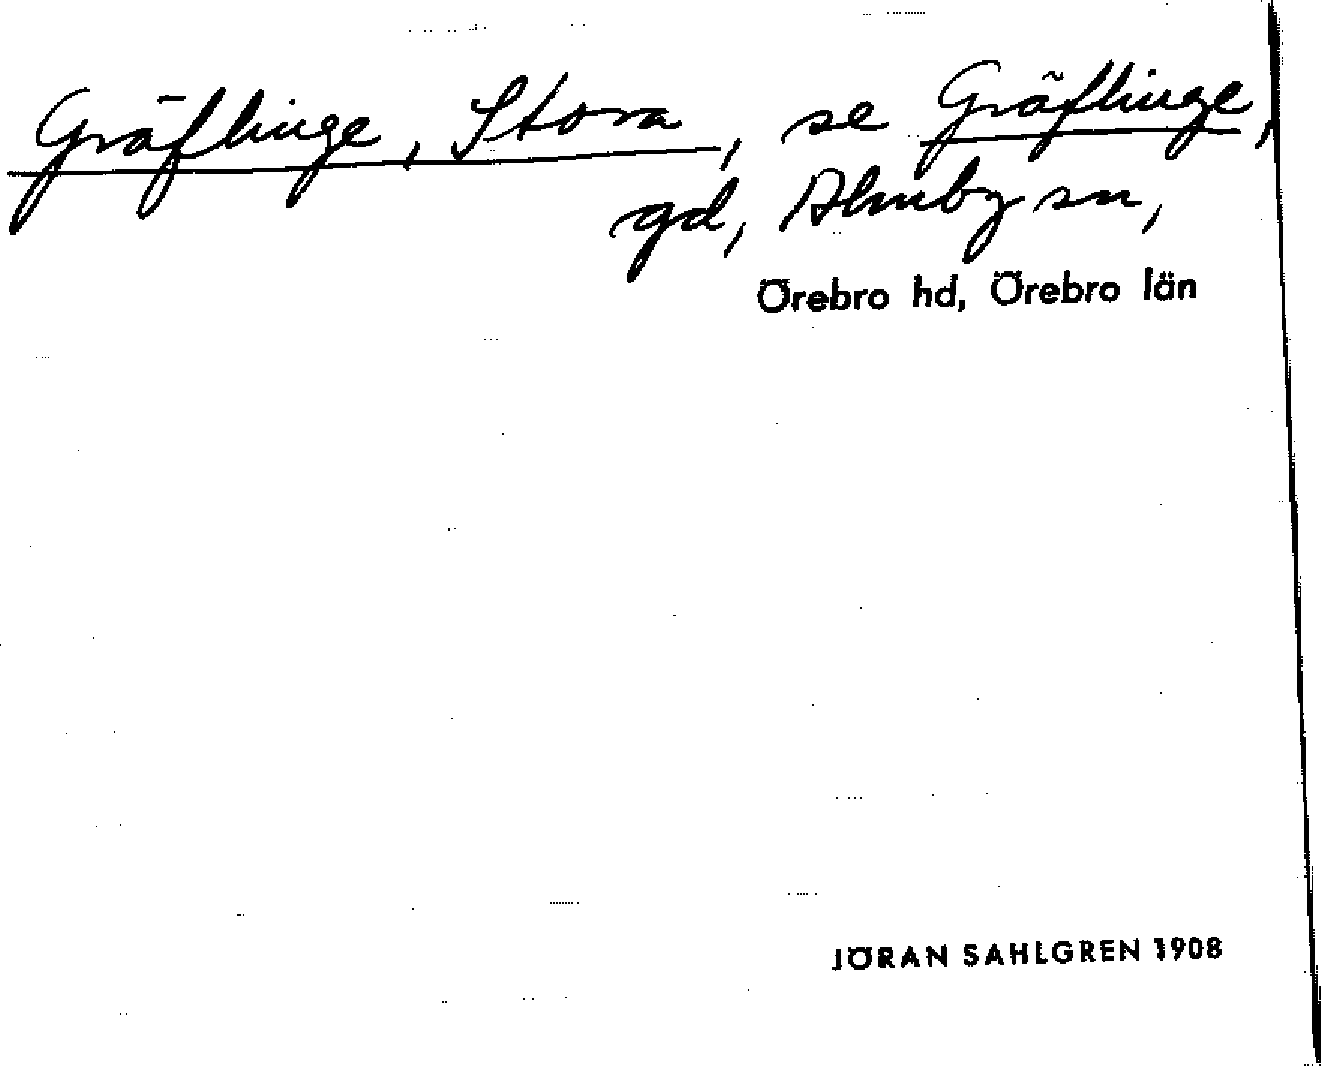 Gräflinge, Stora, se Gräflinge,
gd, Almby sn,
Örebro hd, Örebro län
JÖRAN SAHLGREN 1908